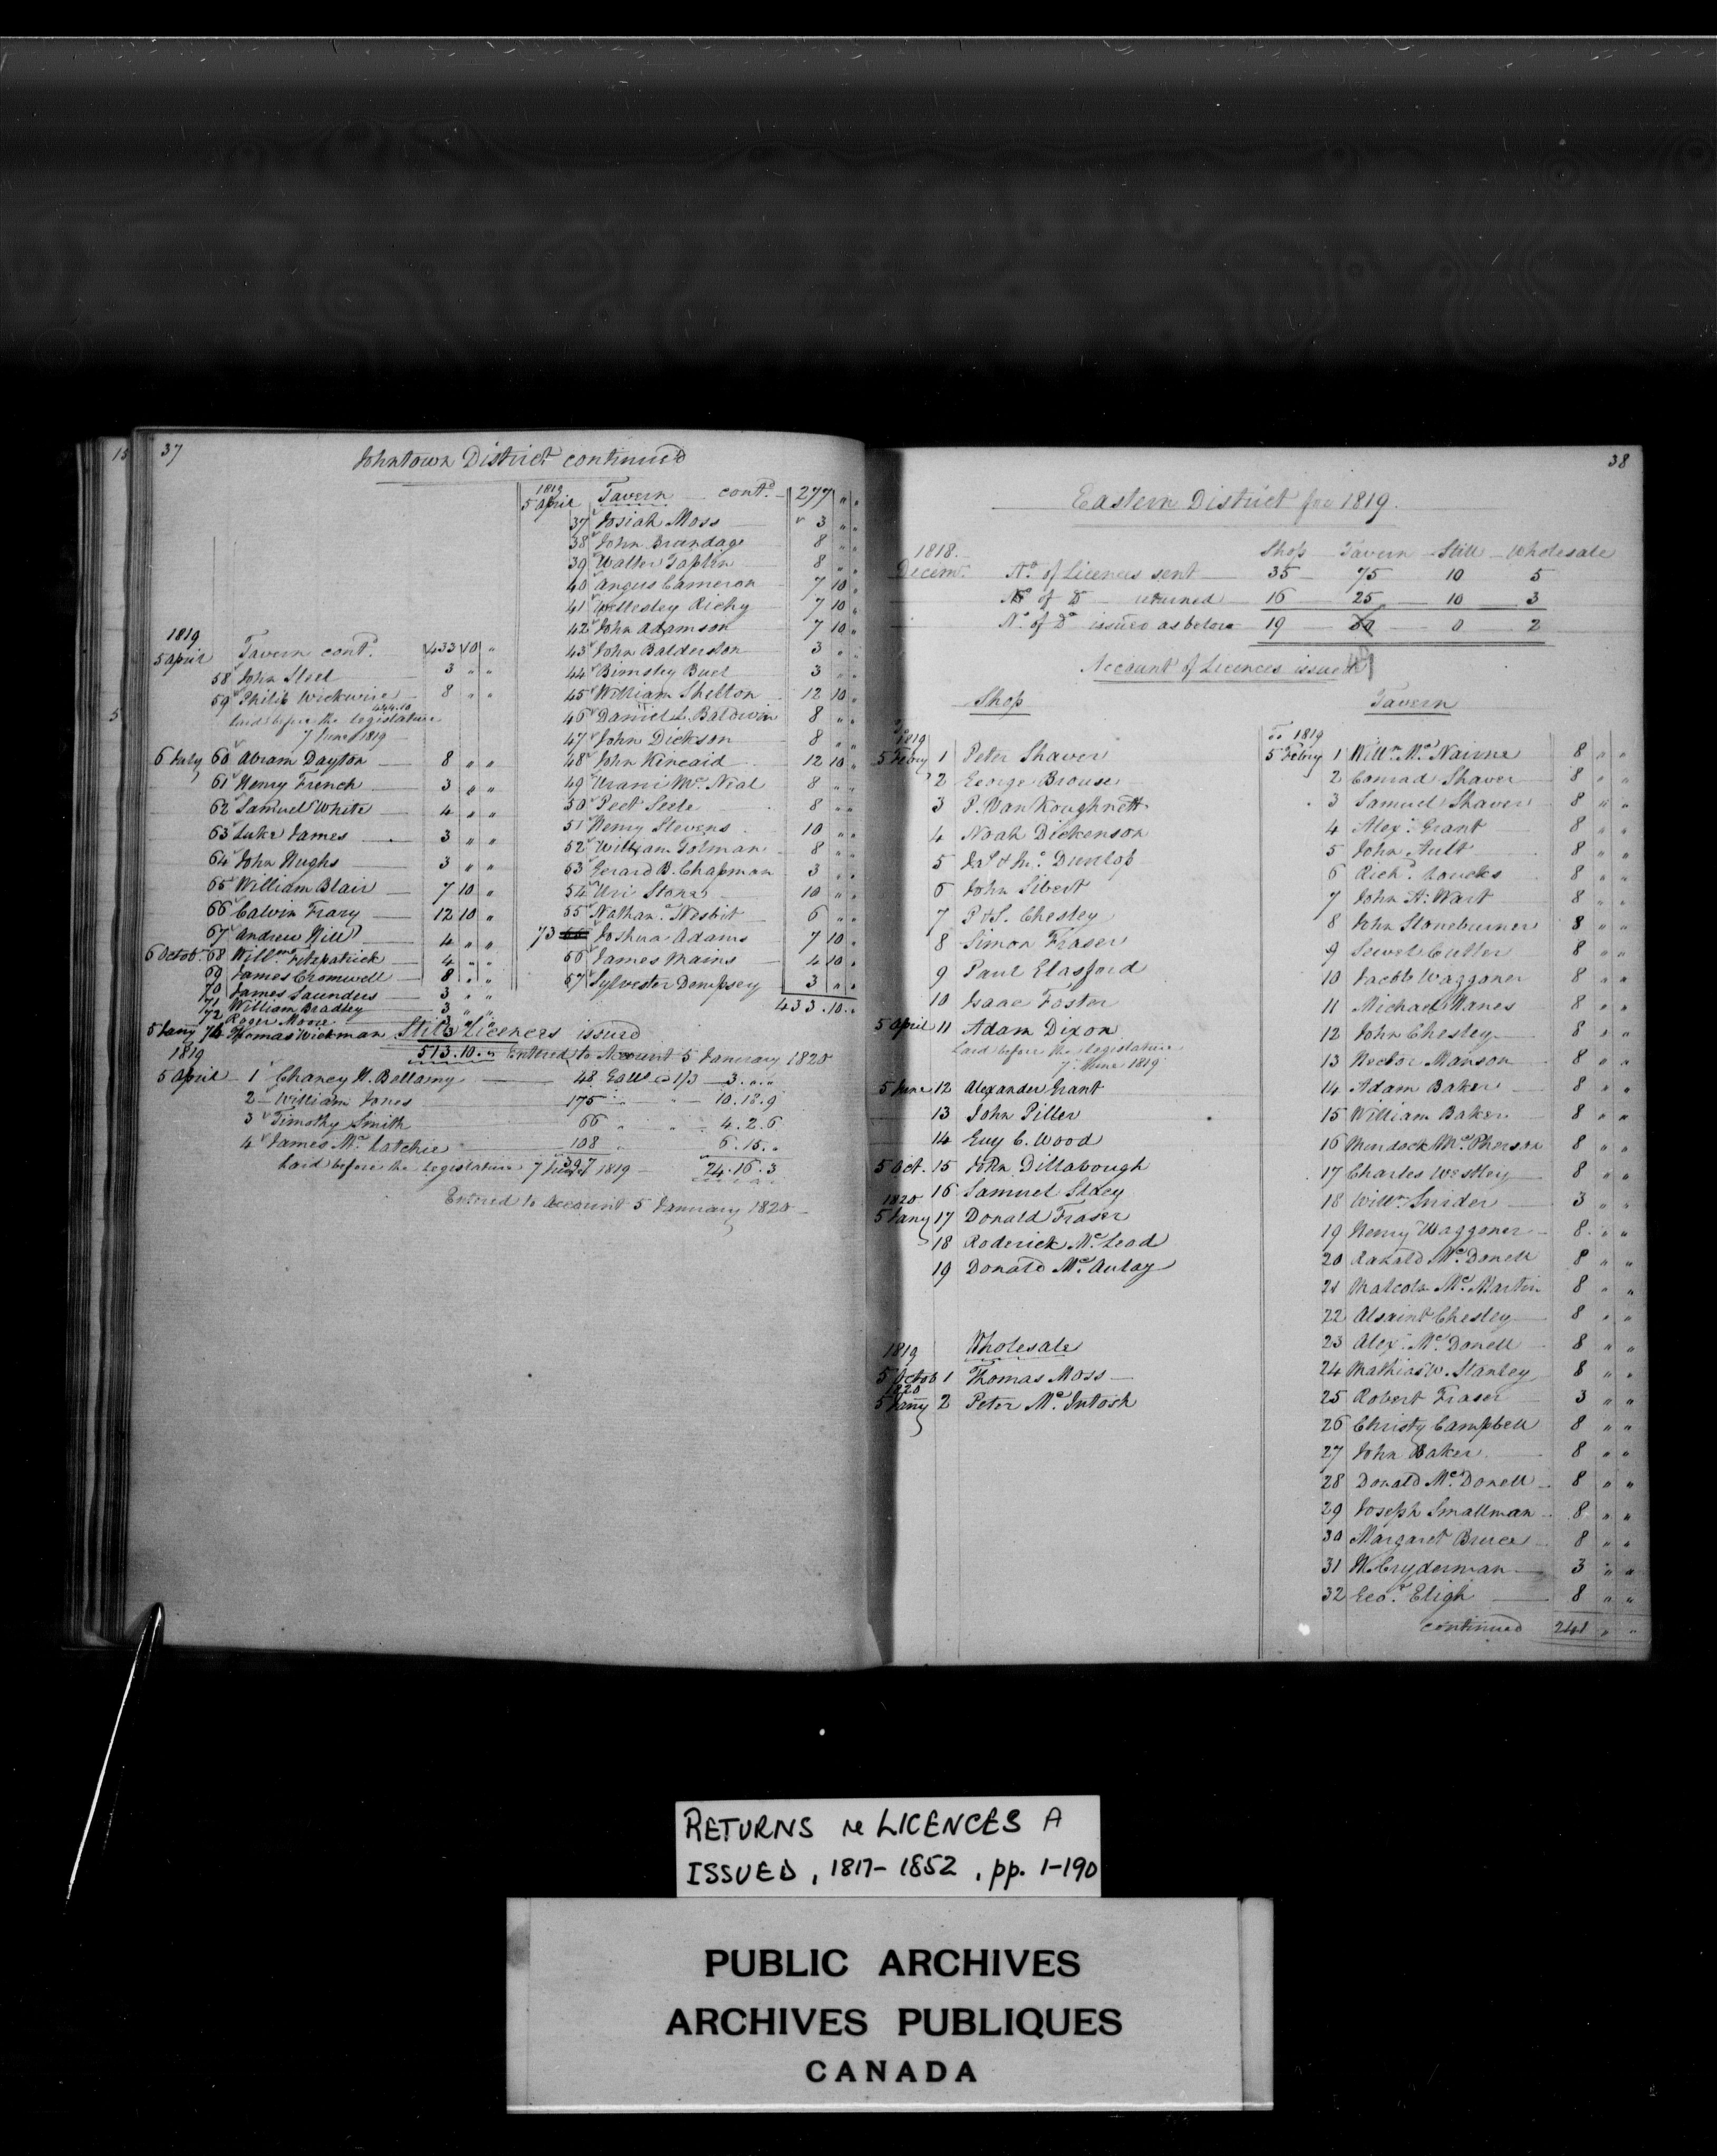 15
5
37
Johntown District continued
1819
5 April Tavern contd. 277 " "
37 Josiah Moss 3 " "
38 John Brundage 8 " "
39 Walter Taplin 8 " "
40 Angus Cameron 7 10 "
41 Wellesley Richy 7 10 "
42 John Adamson 7 10 "
43 John Balderston 3 " "
44 Bimsley Buel 3 " "
45 William Shelton 12 10 "
46 Daniel L. Baldwin 8 " "
47 John Dickson 8 " "
48 John Kincaid 12 10 "
49 Urani Mc. Nial 8 " "
50 Peet Seele 8 " "
51 Henry Stevens 10 " "
52 William Tolman 8 " "
53 Gerard B. Chapman 3 " "
54 Uri Stone 10 " "
55 Nathan Nesbit 6 " "
73 Joshua Adams 7 10 "
56 James Mains 4 10 "
57 Sylvester Dempsey 3 " "
433.10."
1819
5 April Tavern contd. 433 10 "
58 John Steel 3 " "
59 Philip Wickwire 8 " "
444.10
laid before the legislature
7 June 1819
6 July 60 Abram Dayton 8 " "
61 Henry French 3 " "
62 Samuel White 4 " "
63 Luke James 3 " "
64 John Hughs 3 " "
65 William Blair 7 10 "
66 Calvin Frary 12 10 "
67 Andrew Hill 4 " "
6 Octob. 68 Willm. Fitzpatrick 4 " "
69 James Cromwell 8 " "
70 James Saunders 3 " "
71 William Bradley 3 " "
72 Roger Moore 3 " "
5 Jany 74 Thomas Wickman
Still Licences issued
513.10." Entered to Account 5 January 1820
1819
5 April 1 Chancy H. Bellamy 48 Galls @ 1/3 3. " . "
2 William Jones 175 " " 10.18.9
3 Timothy Smith 66 " " 4.2.6
4 James Mc. Latchie 108 " 6.15."
397 24.16.3
Laid before the Legislature 7 June 1819
Entered to Account 5 January 1820
38
Eastern District for 1819.
1818. Shop Tavern Still Wholesale
Decemr. No. of Licences sent 35 75 10 5
No. of Do returned 16 25 10 3
No. of Do issued as before 19 50 0 2
49
Account of Licences issued
Shop
1819
5 Febry 1 Peter Shaver
2 George Brouse
3 P. VanKoughnett
4 Noah Dickenson
5 Jas & Jno. Dunlop
6 John Sibert
7 P & S. Chesley
8 Simon Fraser
9 Paul Glasford
10 Isaac Foster
5 April 11 Adam Dixon
laid before the Legislature
7 June 1819
5 June 12 Alexander Grant
13 John Piller
14 Guy C. Wood
5 Oct. 15 John Dillabough
16 Samuel Stacy
1820
5 Jany 17 Donald Fraser
18 Roderick Mc. Leod
19 Donald Mc. Aulay
1819 Wholesale
5 Octob 1 Thomas Moss
1820
5 Jany 2 Peter Mc. Intosh
Tavern
To 1819
5 Febry 1 Willm. Mc. Nairne 8 " "
2 Conrad Shaver 8 " "
3 Samuel Shaver 8 " "
4 Alexr. Grant 8 " "
5 John Ault 8 " "
6 Richd. Loucks 8 " "
7 John A. Wart 8 " "
8 John Stoneburner 8 " "
9 Sewel Cutler 8 " "
10 Jacob Waggoner 8 " "
11 Michael Manes 8 " "
12 John Chesley 8 " "
13 Hector Manson 8 " "
14 Adam Baker 8 " "
15 William Baker 8 " "
16 Murdock Mc. Pherson 8 " "
17 Charles Westley 8 " "
18 Willm. Snider 3 " "
19 Henry Waggoner 8 " "
20 Ranald Mc. Donell 8 " "
21 Malcolm Mc. Martin 8 " "
22 Alsaint Chesley 8 " "
23 Alexr. Mc. Donell 8 " "
24 Mathias W. Stanley 8 " "
25 Robert Fraser 3 " "
26 Christy Campbell 8 " "
27 John Baker 8 " "
28 Donald Mc. Donell 8 " "
29 Joseph Smallman 8 " "
30 Margaret Bruce 8 " "
31 H. Cryderman 3 " "
32 Geoe. Eligh 8 " "
continued 241 " "
RETURNS re LICENCES A
ISSUED, 1817-1852, pp. 1-190
PUBLIC ARCHIVES
ARCHIVES PUBLIQUES
CANADA